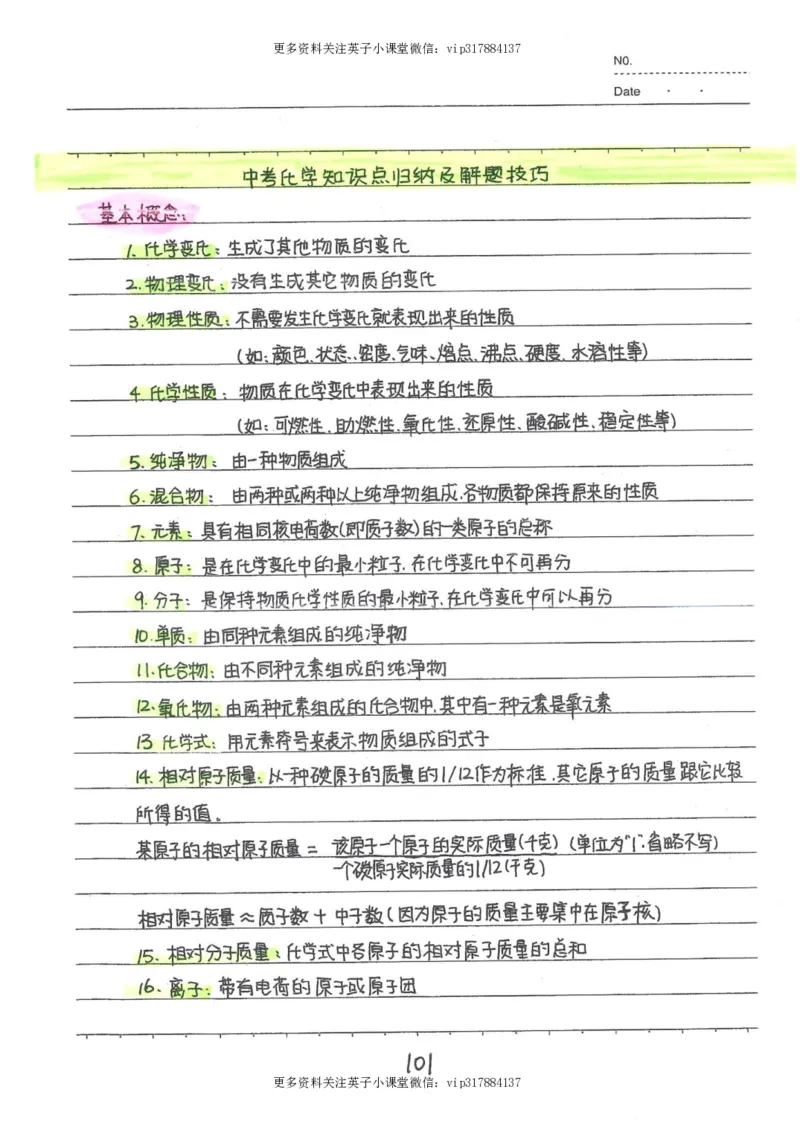 更多资料关注英子小课堂微信：vip317884137
N0.
Date
中考化学知识点归纳及解题技巧
基本概念：
1. 化学变化：生成了其他物质的变化
2. 物理变化：没有生成其它物质的变化
3. 物理性质：不需要发生化学变化就表现出来的性质
（如：颜色、状态、密度、气味、熔点、沸点、硬度、水溶性等）
4. 化学性质：物质在化学变化中表现出来的性质
（如：可燃性、助燃性、氧化性、还原性、酸碱性、稳定性等）
5. 纯净物：由一种物质组成
6. 混合物：由两种或两种以上纯净物组成，各物质都保持原来的性质
7. 元素：具有相同核电荷数（即质子数）的一类原子的总称
8. 原子：是在化学变化中的最小粒子，在化学变化中不可再分
9. 分子：是保持物质化学性质的最小粒子，在化学变化中可以再分
10. 单质：由同种元素组成的纯净物
11. 化合物：由不同种元素组成的纯净物
12. 氧化物：由两种元素组成的化合物中，其中有一种元素是氧元素
13 化学式：用元素符号来表示物质组成的式子
14. 相对原子质量：以一种碳原子的质量的1/12作为标准，其它原子的质量跟它比较
所得的值。
某原子的相对原子质量 = 该原子一个原子的实际质量（千克）（单位为"1"：省略不写）
一个碳原子实际质量的1/12（千克）
相对原子质量 ≈ 质子数 + 中子数（因为原子的质量主要集中在原子核）
15. 相对分子质量：化学式中各原子的相对原子质量的总和
16. 离子：带有电荷的原子或原子团
101
更多资料关注英子小课堂微信：vip317884137